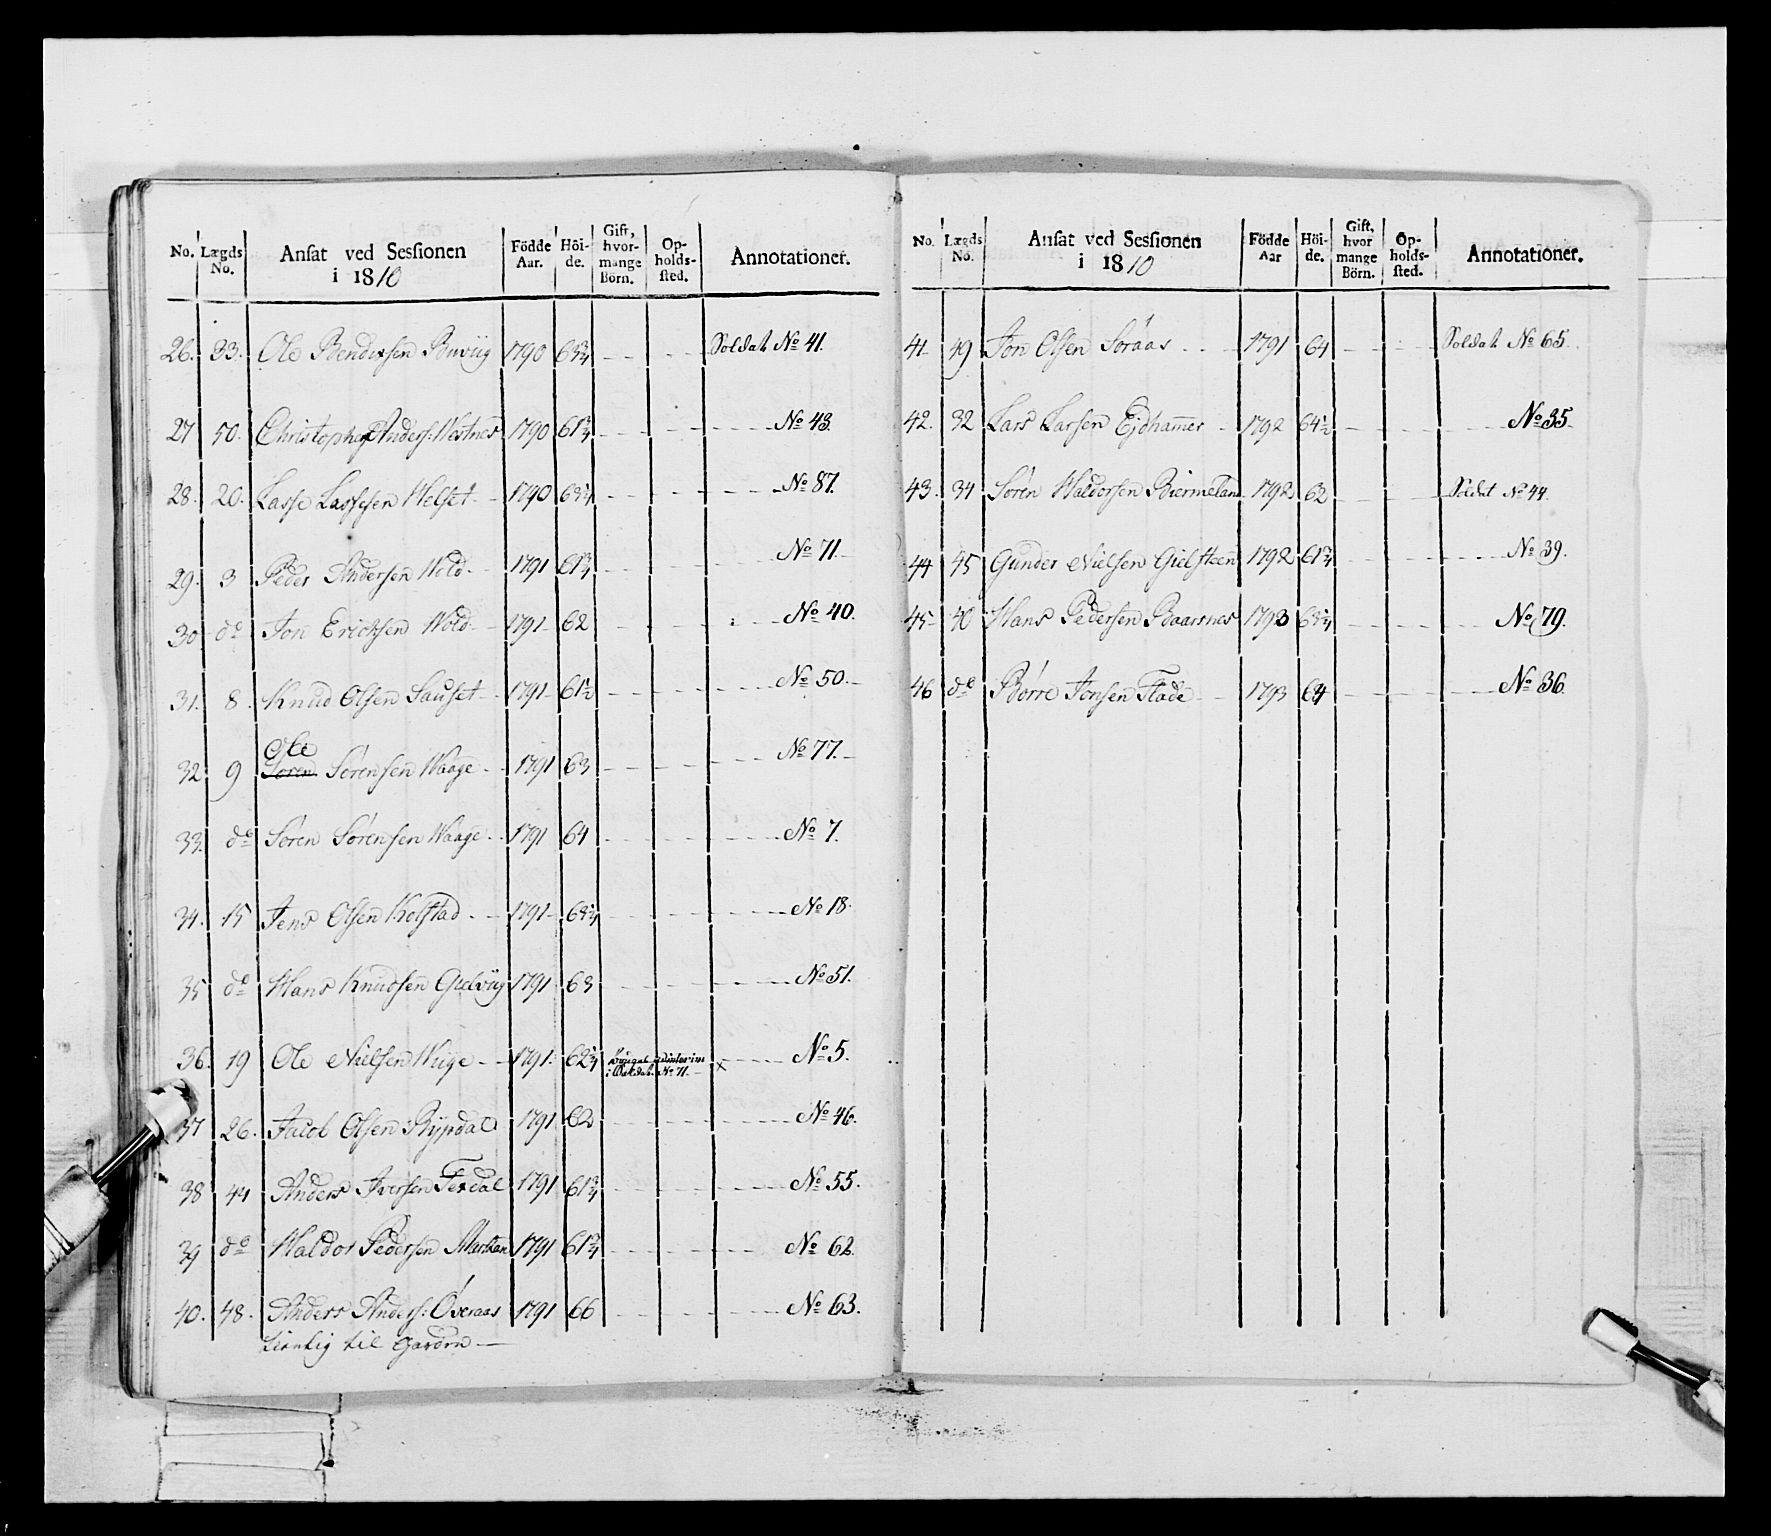 No. Lægds No. Ansat ved Sessionen i 1810 Födde Aar. Höi-de. Gift, hvor-mange Börn. Op-holds-sted. Annotationer.
26. 33. Ole Bendixsen Buviig 1790 63¾ Soldat No 41.
27 50. Christopher Anders: Westnes 1790 61¾ No 43.
28. 20. Lasse Lassesen Helset 1790 63¼ No 87.
29. 3 Peder Andersen Wold 1791 61¾ No 71.
30 do Jon Erichsen Wold 1791 62 No 40.
31. 8. Knud Olsen Sauset 1791 61½ No 50.
Ole
32. 9 Søren Sørensen Waage 1791 63 No 77.
33. do Søren Sørensen Waage 1791 64 No 7.
34. 15 Jens Olsen Kolstad 1791 63¼ No 18.
35 do Hans Knudsen Gielviig 1791 63 No 51.
36. 19 Ole Nielsen Wiige 1791 62¼ No 71. x No 5.
37 26. Jacob Olsen Rypdal 1791 62 No 46.
38 44 Anders Iversen Texdal 1791 61¾ No 55.
39 do Haldor Pedersen 1791 61¾ No 62.
40. 48. Anders Anders: Øveraas 1791 66 No 63.
tientlig til Garden
No. Lægds No. Ansat ved Sessionen i 1810 Födde Aar Höi-de. Gift, hvor mange Börn. Op-holds-sted. Annotationer.
41 49 Jon Olsen Soraas 1791 64 Soldat No 65.
42. 32 Lars Larsen Ejdhammer 1792 64½ No 35
43. 34 Søren Haldorsen Biermelan 1792 62 Soldat No 44.
44 45 Gunder Nielsen Gielsteen 1792 61¾ No 39.
45 40 Hans Pedersen Baarsnes 1793 63¼ No 79.
46 do Børre Jonsen Flade 1793 64 No 36.